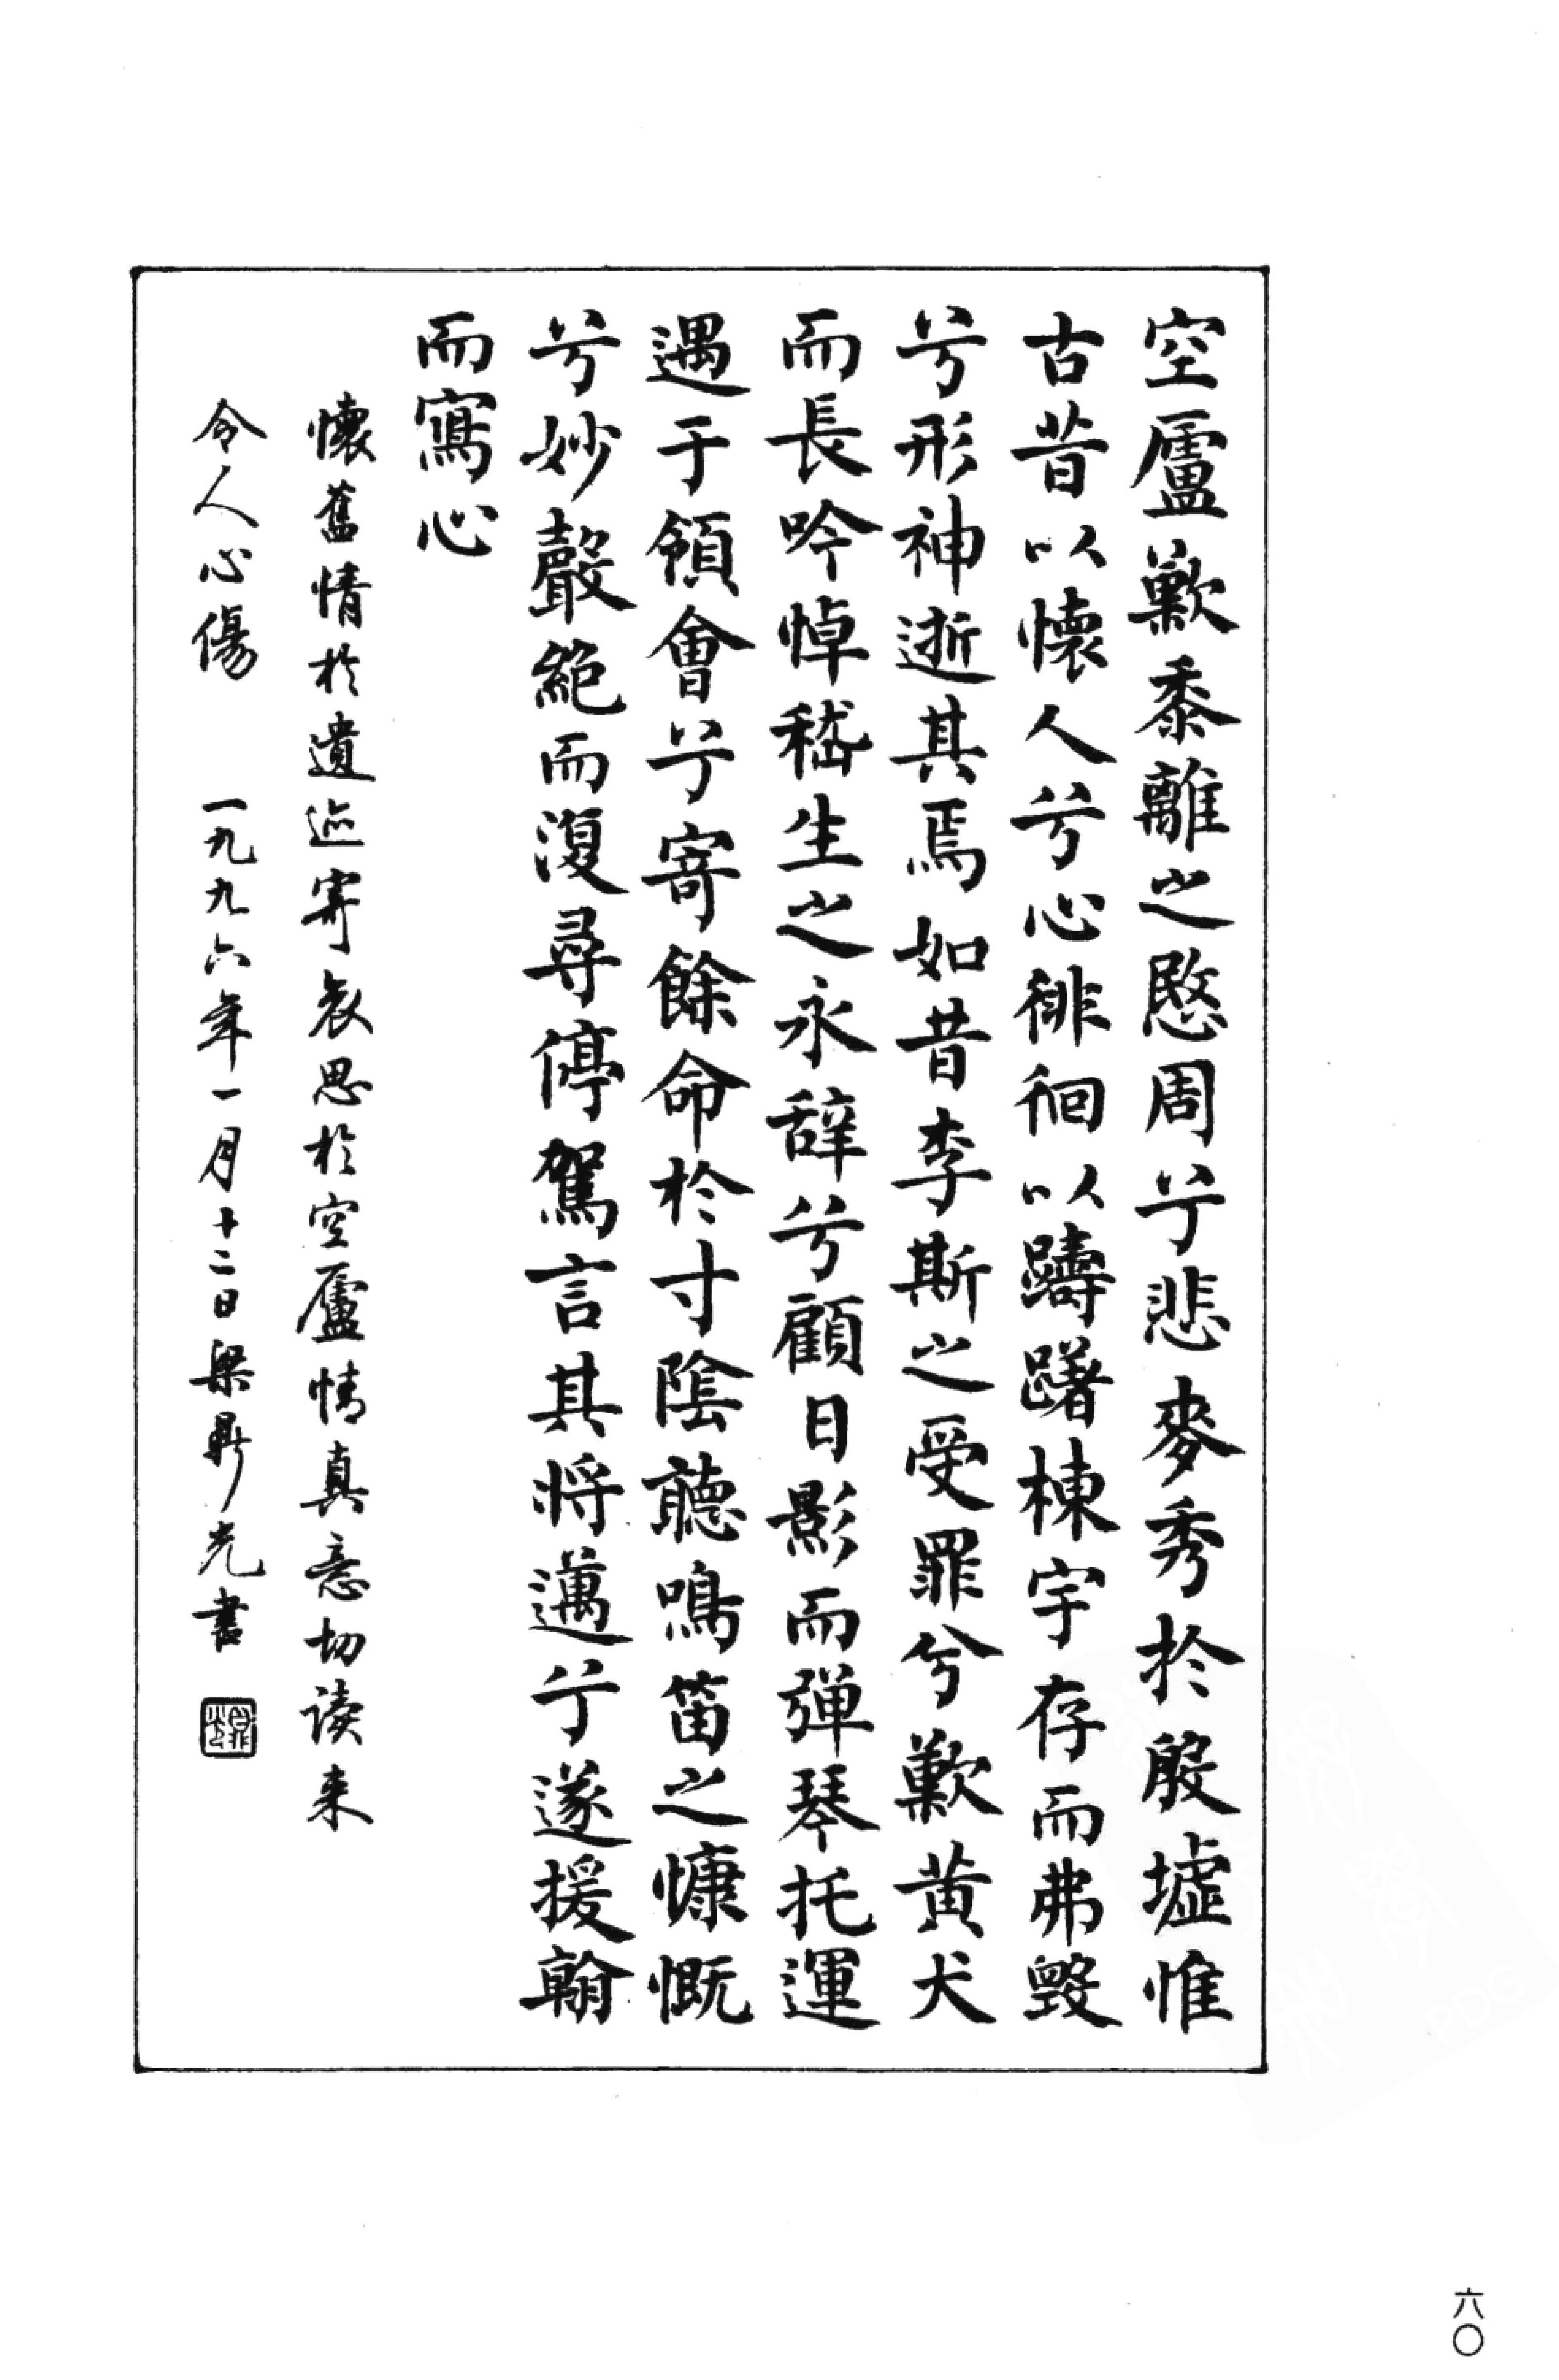 空廬歎黍離之愍周兮悲麥秀於殷墟惟
古昔以懷人兮心徘徊以躊躇棟宇存而弗毀
兮形神逝其焉如昔李斯之受罪兮歎黃犬
而長吟悼嵇生之永辭兮顧日影而彈琴托運
遇于領會兮寄餘命於寸陰聽鳴笛之慷慨
兮妙聲絕而復尋停駕言其將邁兮遂援翰
而寫心
懷舊情於遺迹寄哀思於空廬情真意切读来
令人心傷 一九九六年一月十二日梁鼎光書
六〇